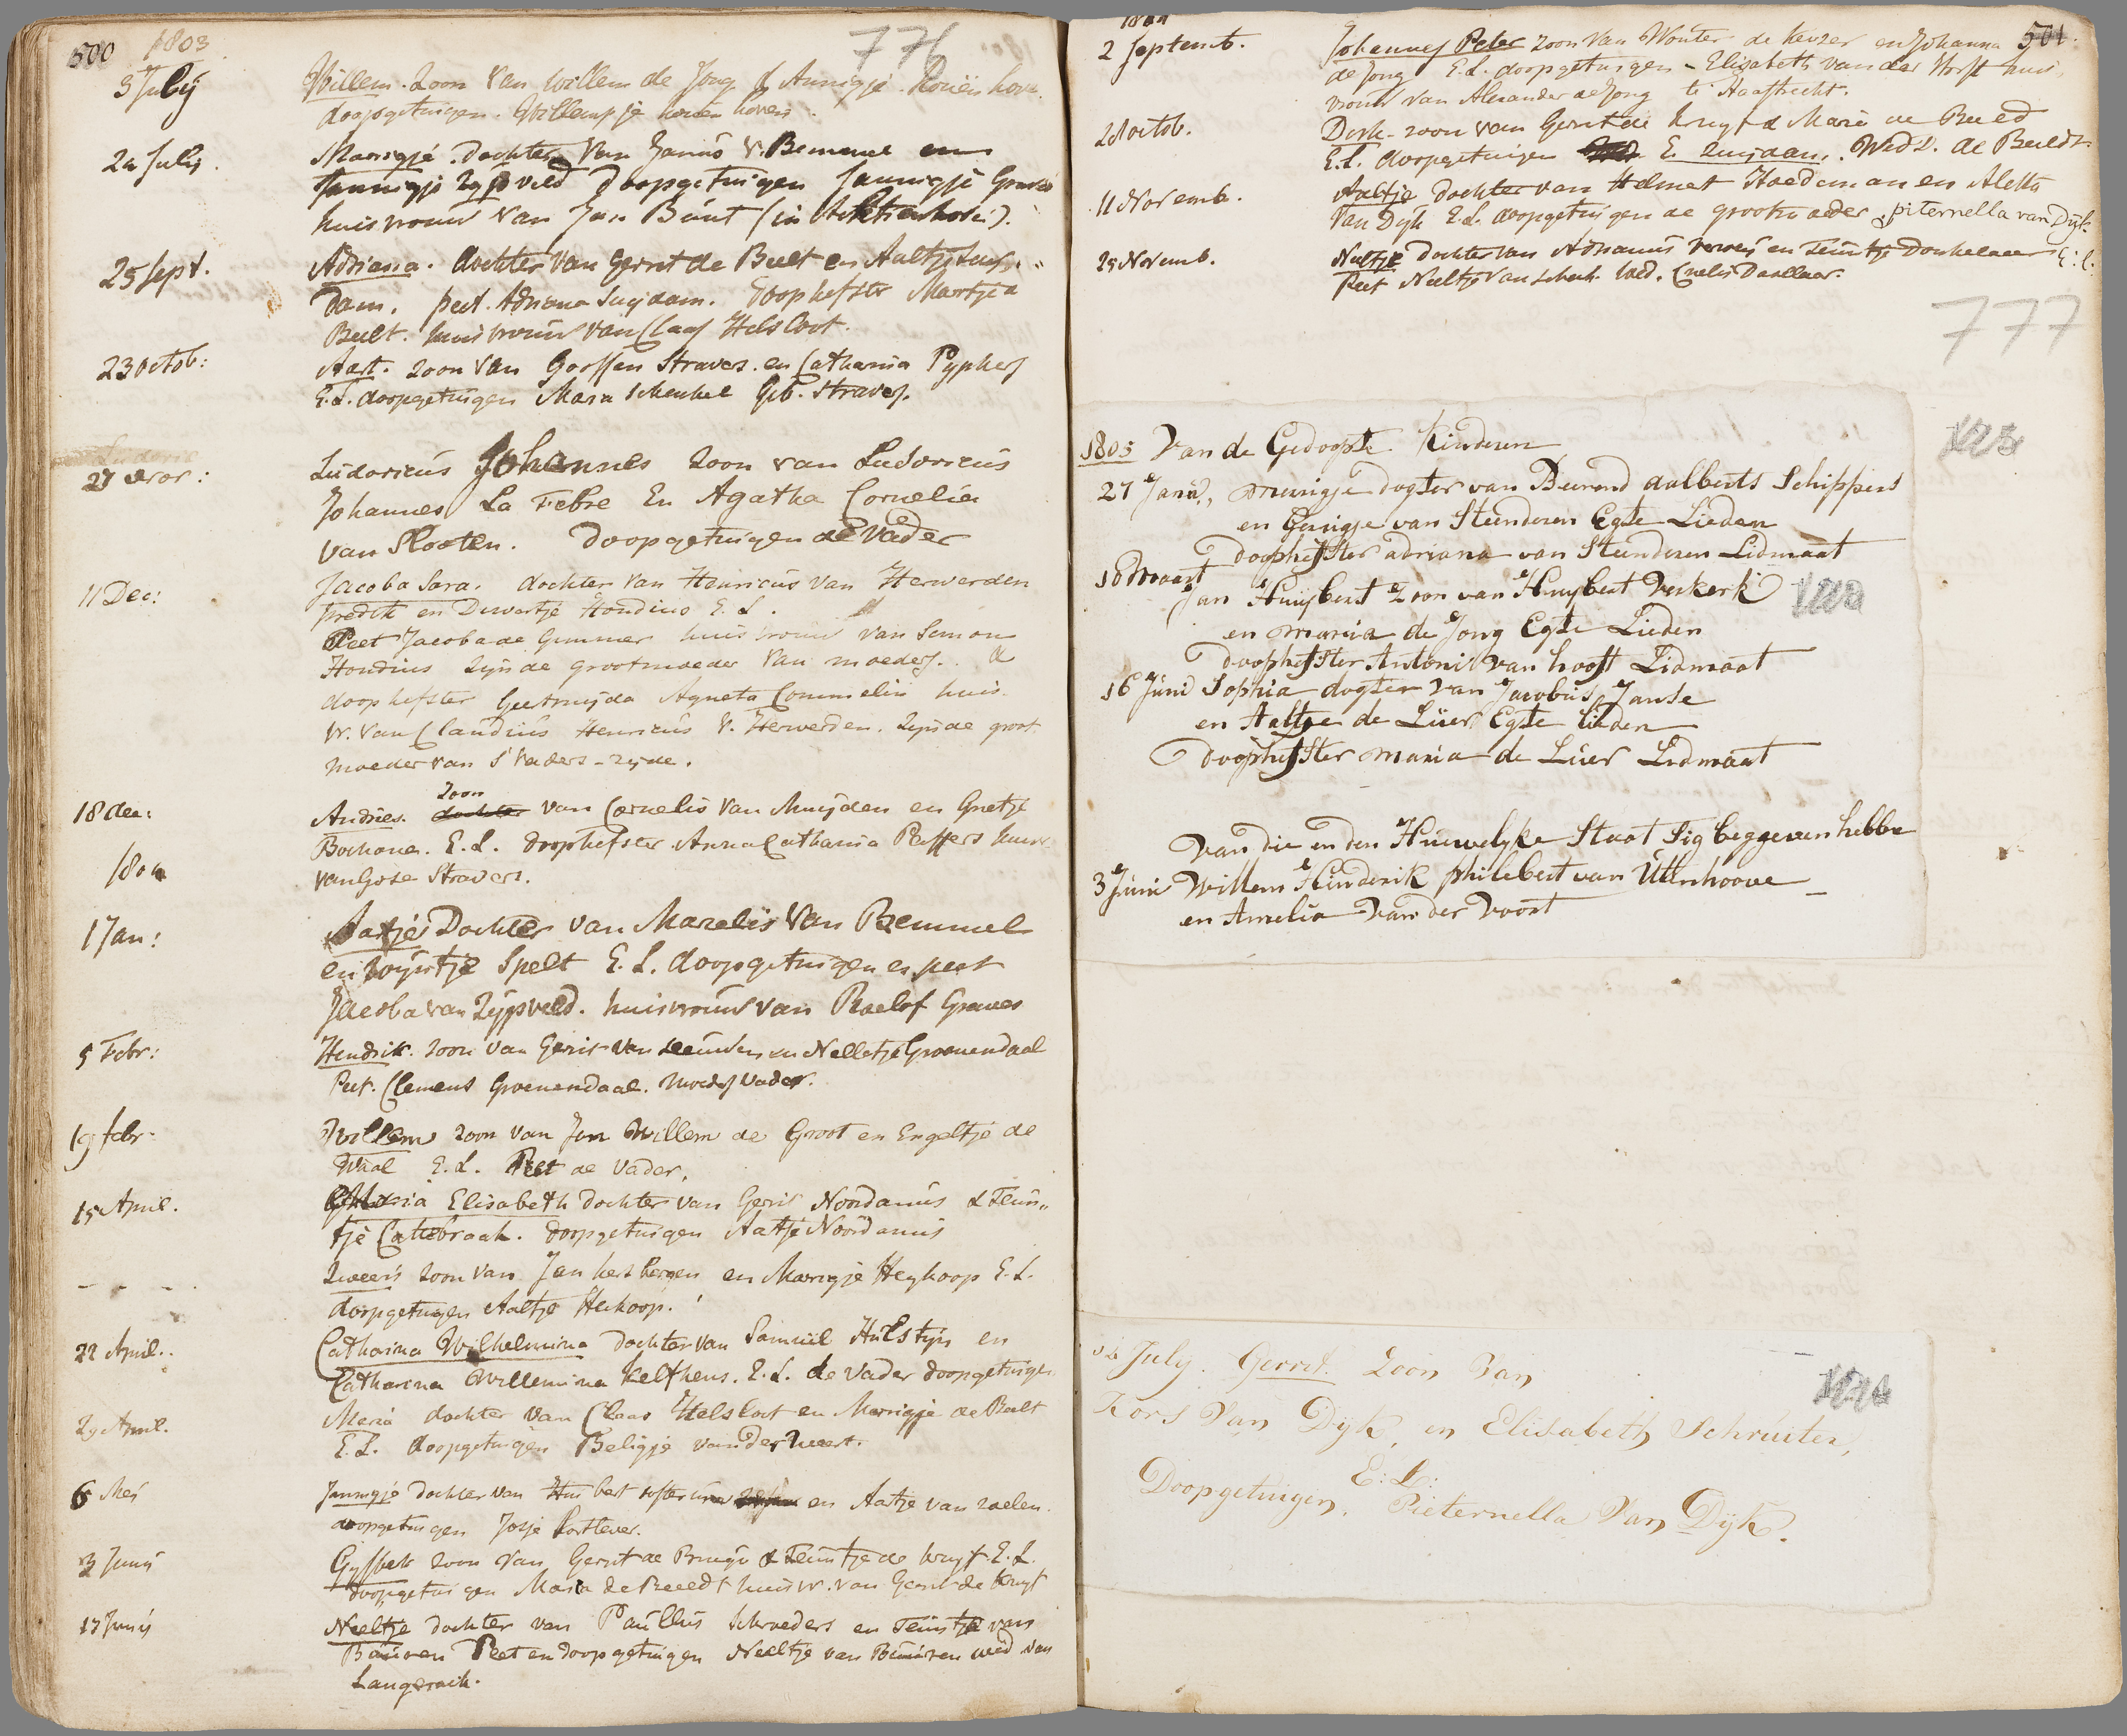 500 1803 776
3 July Willem. Zoon van Willem de Jong & Annigje
doopgetuigen. Willempje
24 July. Marrigje. dochter van Janus v. Bemmel en
Jannigje Zypveld doopgetuigen Jannigje Graves
huisvrouw van Jan Bunt (in Achthoven).
25 Sept. Adriana. dochter van Gerrit de Bult en Aaltje Suij-
dam. peet. Adriana Suijdam. Doophefster Martje a
Bult. huisvrouw van Claas Helsloot.
23 Octob: Aart. zoon van Gossen Straver. en Catharina Pyphers
E.L. doopgetuigen Maria Schenkel Geb. Straver.
27 Nov: Ludovicus Johannes zoon van Ludovicus
Johannes La Febre En Agatha Cornelia
van Slooten. Doopgetuigen de Vader
11 Dec: Jacoba Sara. dochter van Henricus van Herwerden
predik en Dirvertje Hondius E.L.
Peet Jacoba de Gimmer huisvrouw van Simon
Hondius zynde grootmoeder van moeders. &
doophefster Geertruijda Agneta Commelin huis
vr. van Claudius Henricus v. Herwerden. zynde groot
moeder van S Vaders-zyde.
zoon
18 dec: Andries. dochter van Cornelis van Muijden en Grietje
Bochane. E.L. doophefster Anna Catharina Peffers huisvr
1804 van Gose Stravers.
1 Jan: Aatje Dochter van Marelis van Bemmel
en Wijntje Spelt E.L. doopgetuigen en peet
Jacoba van Zijpveld. huisvrouw van Roelof Graves
5 Febr: Hendrik. zoon van Gerit van Leeuwen en Nelletje Groenendaal
Peet. Clemens Groenendaal. moeders vader.
19 febr. Willem zoon van Jan Willem de Groot en Engeltje de
Waal E.L. Peet de Vader.
15 April. Maria Elisabeth dochter van Gerit Noordanus & Teun-
tje Cattebraak. doopgetuigen Aatje Noordanus
- - - - Zweeris zoon van Jan Hersbergen en Marrigje Heykoop E.L.
doopgetuigen Aaltje Heikoop.
22 April. Catharina Wilhelmina dochter van Samuel Hulstijn en
Catharina Willemina Kelfhens. E.L. de Vader doopgetuigen
29 April. Maria dochter van Claas Helsloot en Marrigje de Bult
E.L. doopgetuigen Beligje van der Weert.
6 Mei Jannigje dochter van Huibert en Aatje van zoelen.
doopgetuigen Josje Kortlever.
3 Junij Gysbert zoon van Gerrit de Bruijn & Teuntje de Kruyf. E.L.
doopgetuigen Maria de Beeedt huisvr. van Gerrit de Kruyf
17 Junij Neeltje dochter van Paullus Schroeders en Teuntje van
Buuren Peet en doopgetuigen Neeltje van Buuren wed van
Langerack.
1804 501
2 Septemb. Johannes Peter zoon van Wouter de Keyzer en Johanna
de Jong E.L. doopgetuigen - Elisabeth van der Horst huis-
vrouw van Alexander de Jong te Haastrecht.
28 Octob. Dirk- zoon van Gerrit de Kruyf & Maria de Beeld
E.L. doopgetuigen E. Zuijdam. Wed D. de Beeldt
11 Novemb. Aaltje dochter van Helmert Hoedeman en Aletta
van Dyk E.L. doopgetuigen de grootmoeder piternella van Dyk
25 Novemb. Neeltje dochter van Adrianus Verweij en Teuntje Donkelaar E:L:
Peet Neeltje van Schaik. Wed. Cnelis Donllaar.
777
1805 Van de Gedoopte Kinderen
27 Janu, Merrigje dogter van Beerend aalberts Schippers
en Gerrigje van Steenderen Egte Lieden
doophefster adriana van Steenderen Lidmaat
10 Maart Jan Huijbert Zoon van Huijbert Verkerk
en maria de Jong Egte Lieden
doophefster Antonia van hooft Lidmaat
16 Juni Sophia dogter van Jacobus Janse
en Aaltje de Lüer Egte lieden
doophefster maria de Lüer Lidmaat
Van die in den Huwelyke Staat Sig beggeven hebbe
3 Juni Willem Hinderik philebert van Uttenhoove
en Amelia van der Voort
July. Gerrit. Zoon Van
Kors Van Dyk, en Elisabeth Schruiter,
E:L:
Doopgetuigen, Pieternella Van Dyk.